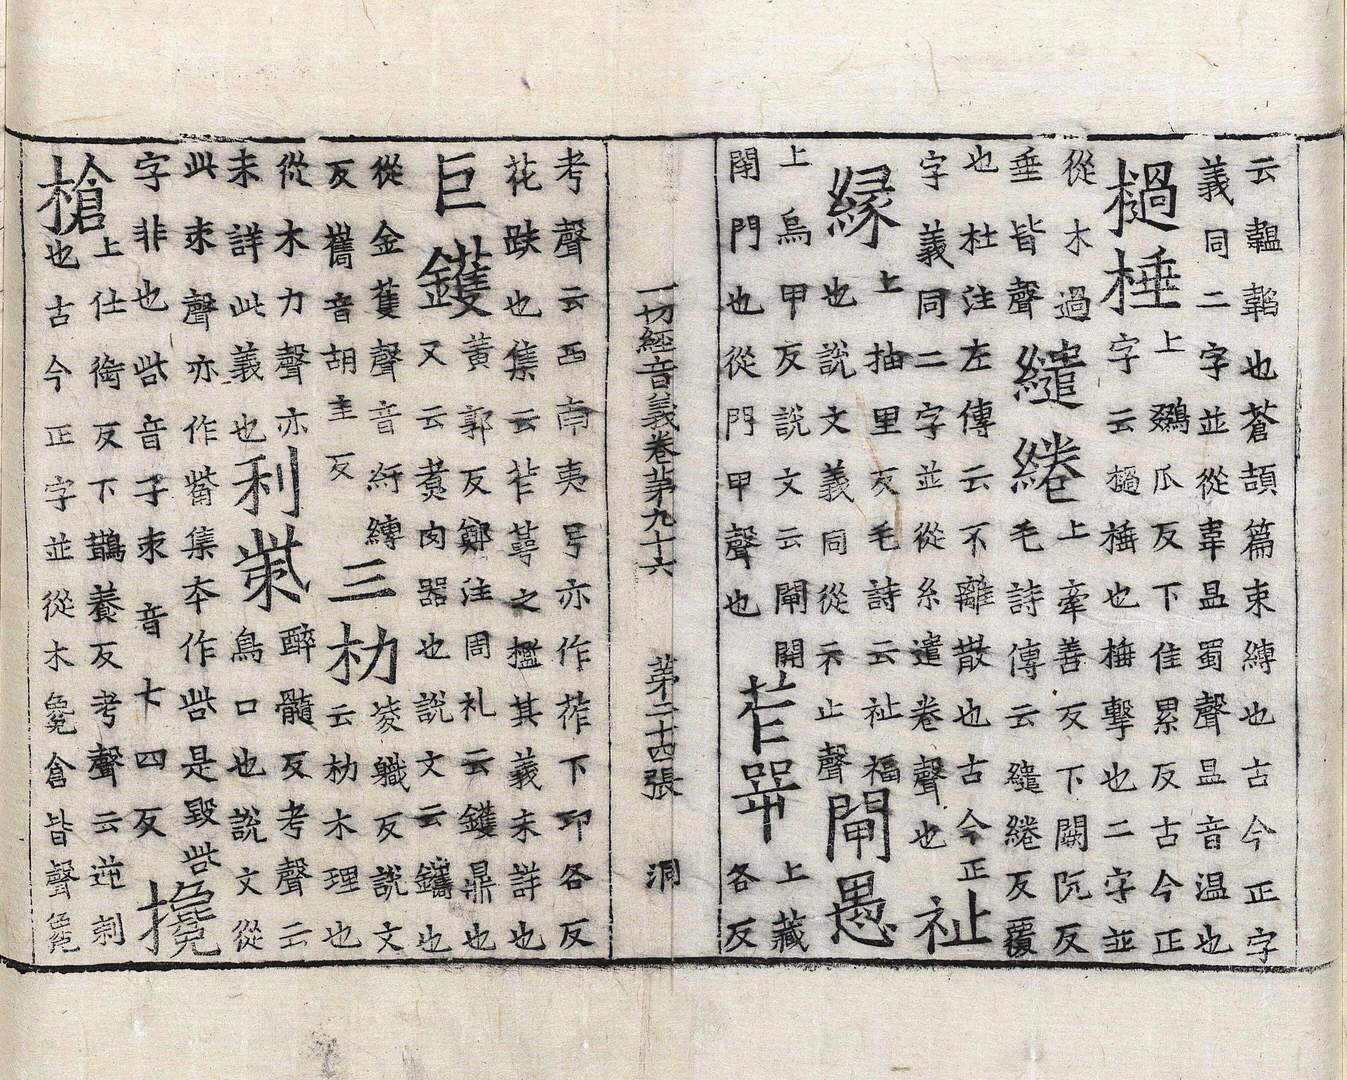 云韞韜也蒼頡篇束縛也古今正字
義同二字並從韋昷蜀聲昷音温也
檛棰上鵽瓜反下佳累反古今正
字云檛棰也棰擊也二字並
從木過
垂皆聲繾綣上牽善反下闕阮反
毛詩傳云繾綣反覆
也杜注左傳云不離散也古今正
字義同二字並從糸遣卷聲也祉
縁上抽里反毛詩云祉福
也說文義同從示止聲閘愚
上烏甲反說文云閘開
閉門也從門甲聲也䒳㖾上藏
各反
一切經音義卷苐九十六　苐二十四張　洞
考聲云西南夷号亦作筰下卭各反
花趺也集云䒳萼之檻其義未詳也
巨鑊黄郭反鄭注周礼云鑊鼎也
又云煑肉器也說文云鑴也
從金蒦聲音紆縛
反舊音胡圭反三朸凌軄反說文
云朸木理也
從木力聲亦
未詳此義也利觜醉髓反考聲云
鳥口也說文從
此朿聲亦作觜集本作呰是毀呰
字非也呰音子朿音七四反攙
槍上仕銜反下鵲養反考聲云逆刺
也古今正字並從木毚倉皆聲毚